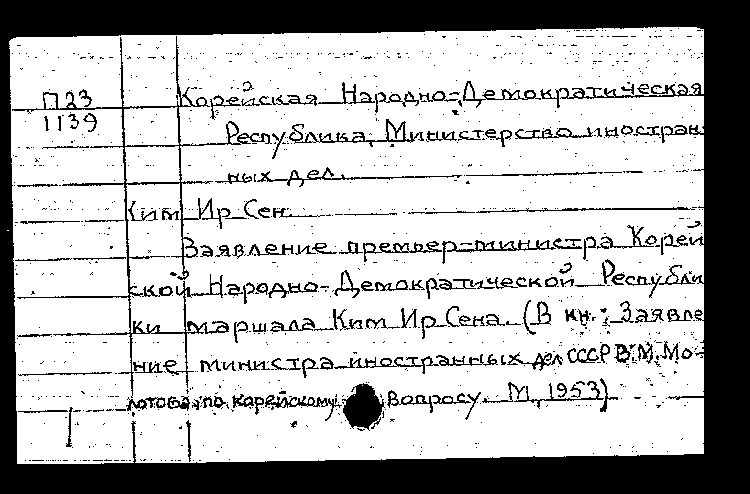 П23 Корейская Народно-Демократическая
1139 Республика, Министерство иностран
ных дел.
Ким Ир Сен.
Заявление премьер-министра Корей
ской Народно-Демократической Республи
ки маршала Ким Ир Сена. (В кн.: Заявле
ние министра иностранных дел СССР В.М. Мо-
лотова по корейскому вопросу. М., 1953)